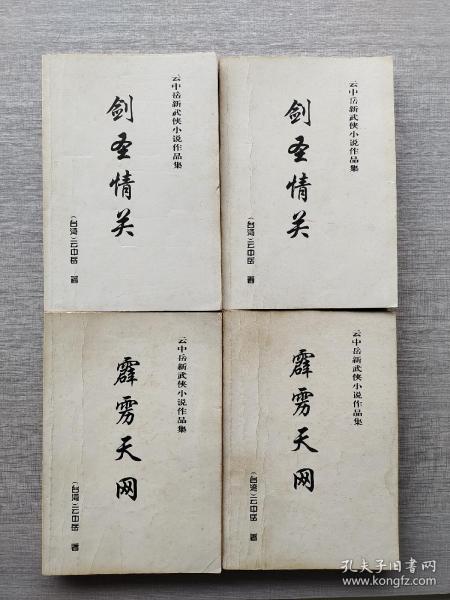 云中岳新武侠小说作品集
剑圣情关
（台湾）云中岳 著
云中岳新武侠小说作品集
剑圣情关
（台湾）云中岳 著
云中岳新武侠小说作品集
霹雳天网
（台湾）云中岳 著
云中岳新武侠小说作品集
霹雳天网
（台湾）云中岳 著
孔夫子旧书网
www.kongfz.com